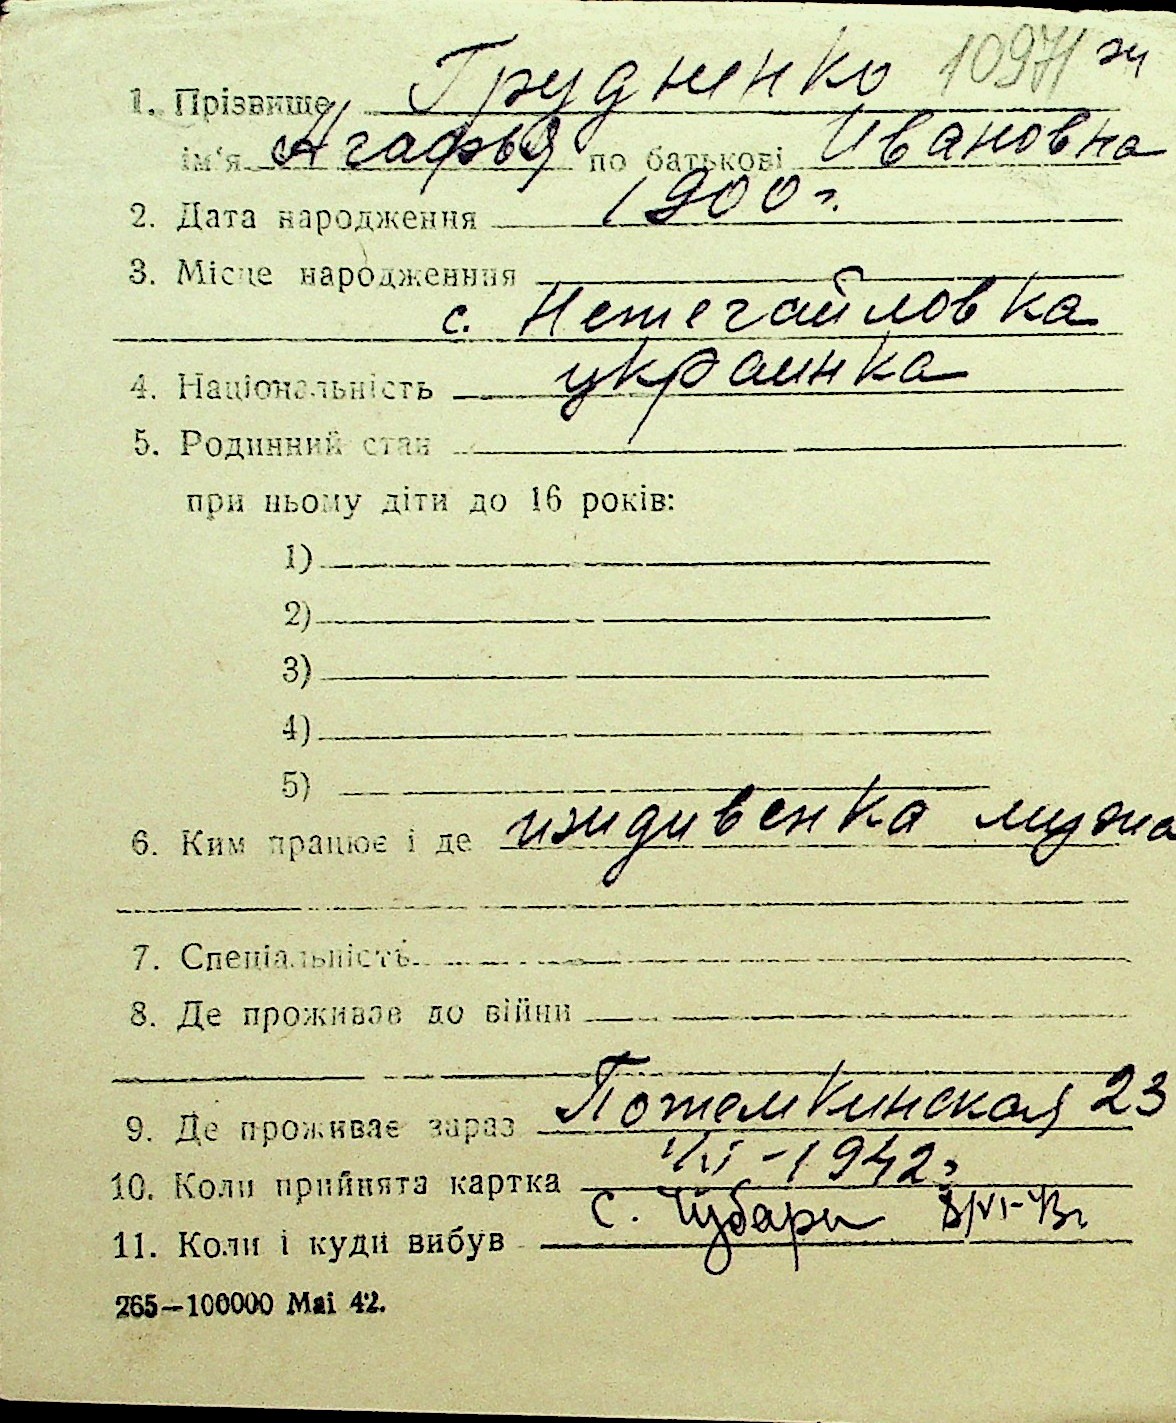 1. Прізвище Грудненко 10971 ж
ім'я Агафья по батькові Ивановна
2. Дата народження 1900 г.
3. Місце народженния
с. Нетегайловка
4. Національність украинка
5. Родинний стан
при ньому діти до 16 років:
1)
2)
3)
4)
5)
6. Ким працює і де иждивенка мужа
7. Спеціальність
8. Де проживав до війни
9. Де проживає зараз Потемкинская 23
10. Коли прийнята картка 1/XI-1942 г
11. Коли і куди вибув с. Чубари 8/VI-43г
265—100000 Mai 42.